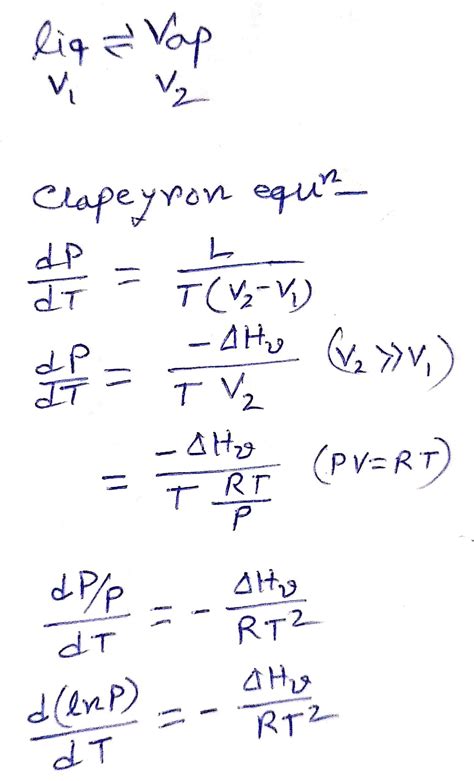 liq ⇌ Vap
V₁ V₂
Clapeyron equⁿ—
dP/dT = L/T(V₂-V₁)
dP/dT = -ΔHᵥ/T V₂ (V₂ >> V₁)
= -ΔHᵥ/T RT/P (PV=RT)
dP/P/dT = - ΔHᵥ/RT²
d(lnP)/dT = - ΔHᵥ/RT²